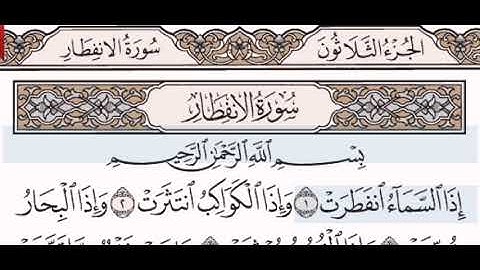 الجزء الثلاثون
سورة الانفطار
سورة الانفطار
بسم الله الرحمن الرحيم
إِذَا السَّمَآءُ انفَطَرَتْ ١ وَإِذَا الْكَوَاكِبُ انتَثَرَتْ ٢ وَإِذَا الْبِحَارُ